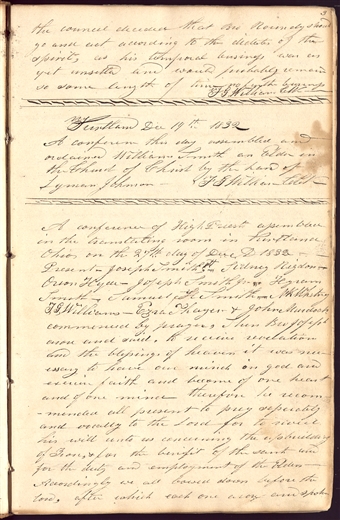 3
the council decreed that Bro Kennedy should
go and act according to the dictates of the
spirit, as his temporal
yet unsettled and would probably remain
so some length of time
F G Williams Clk
Kirtland Dec 19th 1832
A conference this day assembled and
ordained William Smith an Elder in
the Church of Christ by the hand of
Lyman Johnson — F G Williams Clk
A conference of High Priests assembled
in the translating room in Kirtland
Ohio on the 27th day of Dec AD 1832 —
Present — Joseph Smith Sidney Rigdon
Orson Hyde — Joseph Smith jr — Hyrum
Smith — Samuel H. Smith — N K Whitney
F G Williams — Ezra Thayer & John Murdock
commenced by prayer, Then Bro Joseph
arose and said, to receive revelation
and the blessings of heaven it was nec
essary to have our minds on god and
exercise faith and become of one heart
and of one mind therefore he recom
mended all present to pray separately
and vocally to the Lord for to reveal
his will unto us concerning the upbuilding
of Zion, & for the benefit of the saints and
for the duty and employment of the Elders —
Accordingly we all bowed down before the
Lord, after which each one arose and spoke